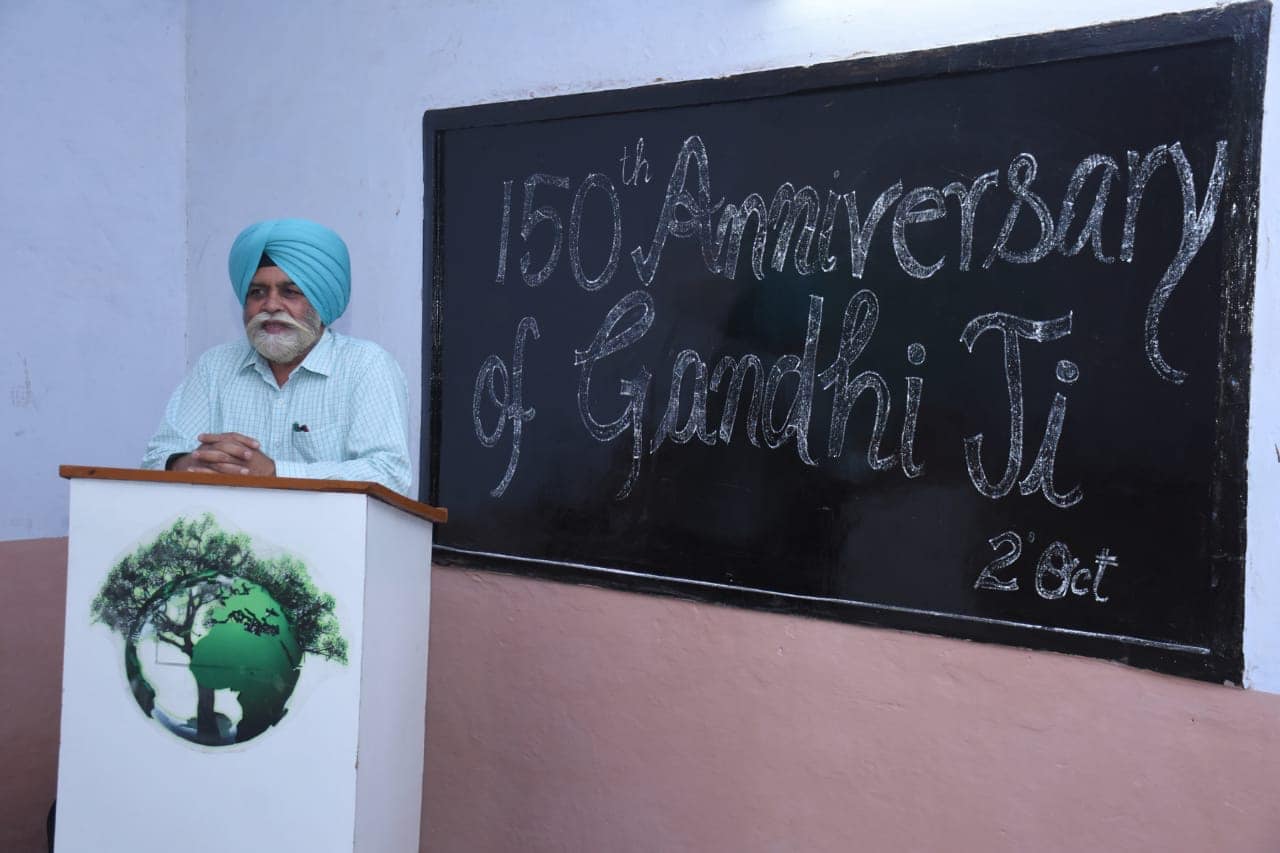 150th Anniversary
of Gandhi Ji
2' Oct